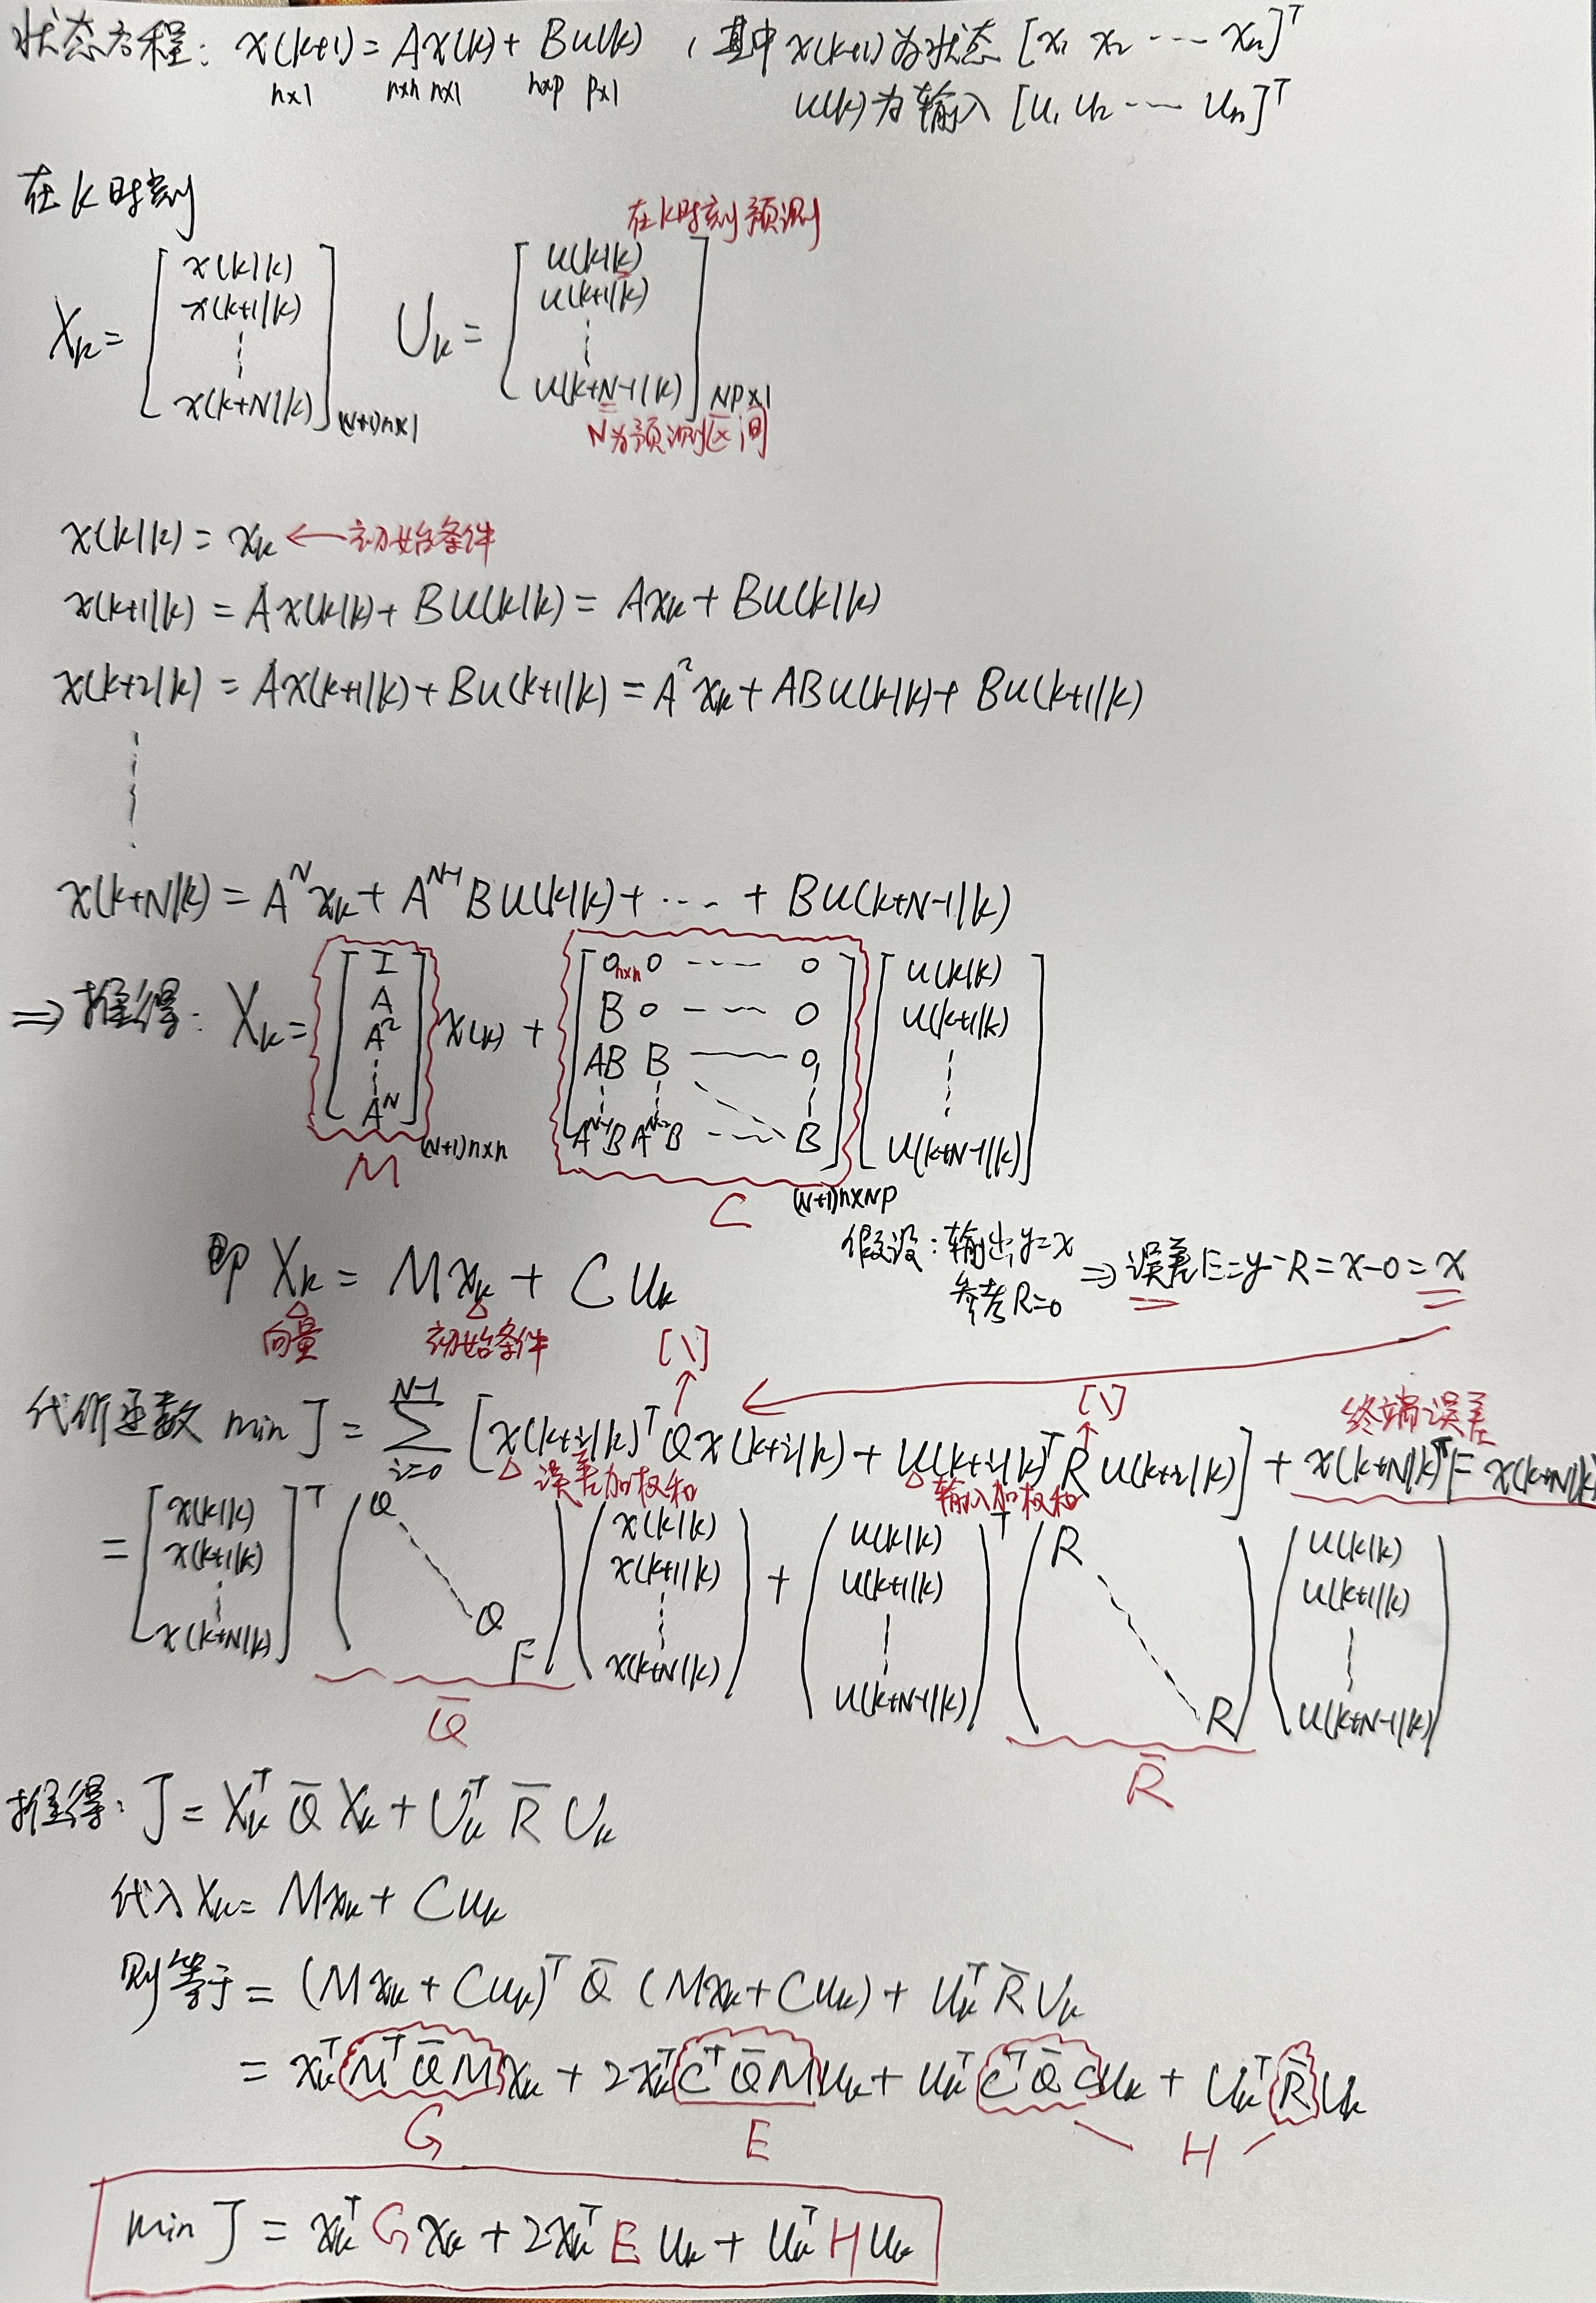 状态方程: x(k+1) = Ax(k) + Bu(k) , 其中 x(k+1)为状态 [x₁ x₂ ---- xₙ]ᵀ
n×1 n×n n×1 n×p p×1
u(k)为输入 [u₁ u₂ ---- uₙ]ᵀ
在k时刻
在k时刻预测
Xₖ = [x(k|k) x(k+1|k) ⋮ x(k+N|k)] (N+1)n×1 Uₖ = [u(k|k) u(k+1|k) ⋮ u(k+N-1|k)] Np×1
N为预测区间
x(k|k) = xₖ ← 初始条件
x(k+1|k) = Ax(k|k) + Bu(k|k) = Axₖ + Bu(k|k)
x(k+2|k) = Ax(k+1|k) + Bu(k+1|k) = A²xₖ + ABu(k|k) + Bu(k+1|k)
⋮
x(k+N|k) = Aᴺxₖ + Aᴺ⁻¹Bu(k|k) + ---- + Bu(k+N-1|k)
⇒ 推得: Xₖ = [I A A² ⋮ Aᴺ] x(k) + [0 n×n 0 ---- 0 B 0 ---- 0 AB B —— 0 ⋮ ⋮ ⋮ Aᴺ⁻¹B Aᴺ⁻²B ---- B] [u(k|k) u(k+1|k) ⋮ u(k+N-1|k)]
(N+1)n×n
M
(N+1)n×Np
C
即 Xₖ = Mxₖ + Cuₖ
向量 初始条件
假设: 输出y=x
参考R=0
⇒ 误差E=y-R=x-0=x
[\] [\] 终端误差
代价函数 min J = Σ i=0 N-1 [x(k+i|k)ᵀQx(k+i|k) + u(k+i|k)ᵀRu(k+i|k)] + x(k+N|k)ᵀFx(k+N|k)
误差加权和 输入加权和
= [x(k|k) x(k+1|k) ⋮ x(k+N|k)]ᵀ (Q ⋱ Q F) (x(k|k) x(k+1|k) ⋮ x(k+N|k)) + (u(k|k) u(k+1|k) ⋮ u(k+N-1|k))ᵀ (R ⋱ R) (u(k|k) u(k+1|k) ⋮ u(k+N-1|k))
Q̄ R̄
推得: J = XₖᵀQ̄Xₖ + UₖᵀR̄Uₖ
代入Xₖ = Mxₖ + Cuₖ
则等于 = (Mxₖ + Cuₖ)ᵀ Q̄ (Mxₖ + Cuₖ) + UₖᵀR̄Uₖ
= xₖᵀMᵀQ̄Mxₖ + 2xₖᵀCᵀQ̄Muₖ + uₖᵀCᵀQ̄Cuₖ + UₖᵀR̄Uₖ
G E H
min J = xₖᵀGxₖ + 2xₖᵀEuₖ + uₖᵀHuₖ